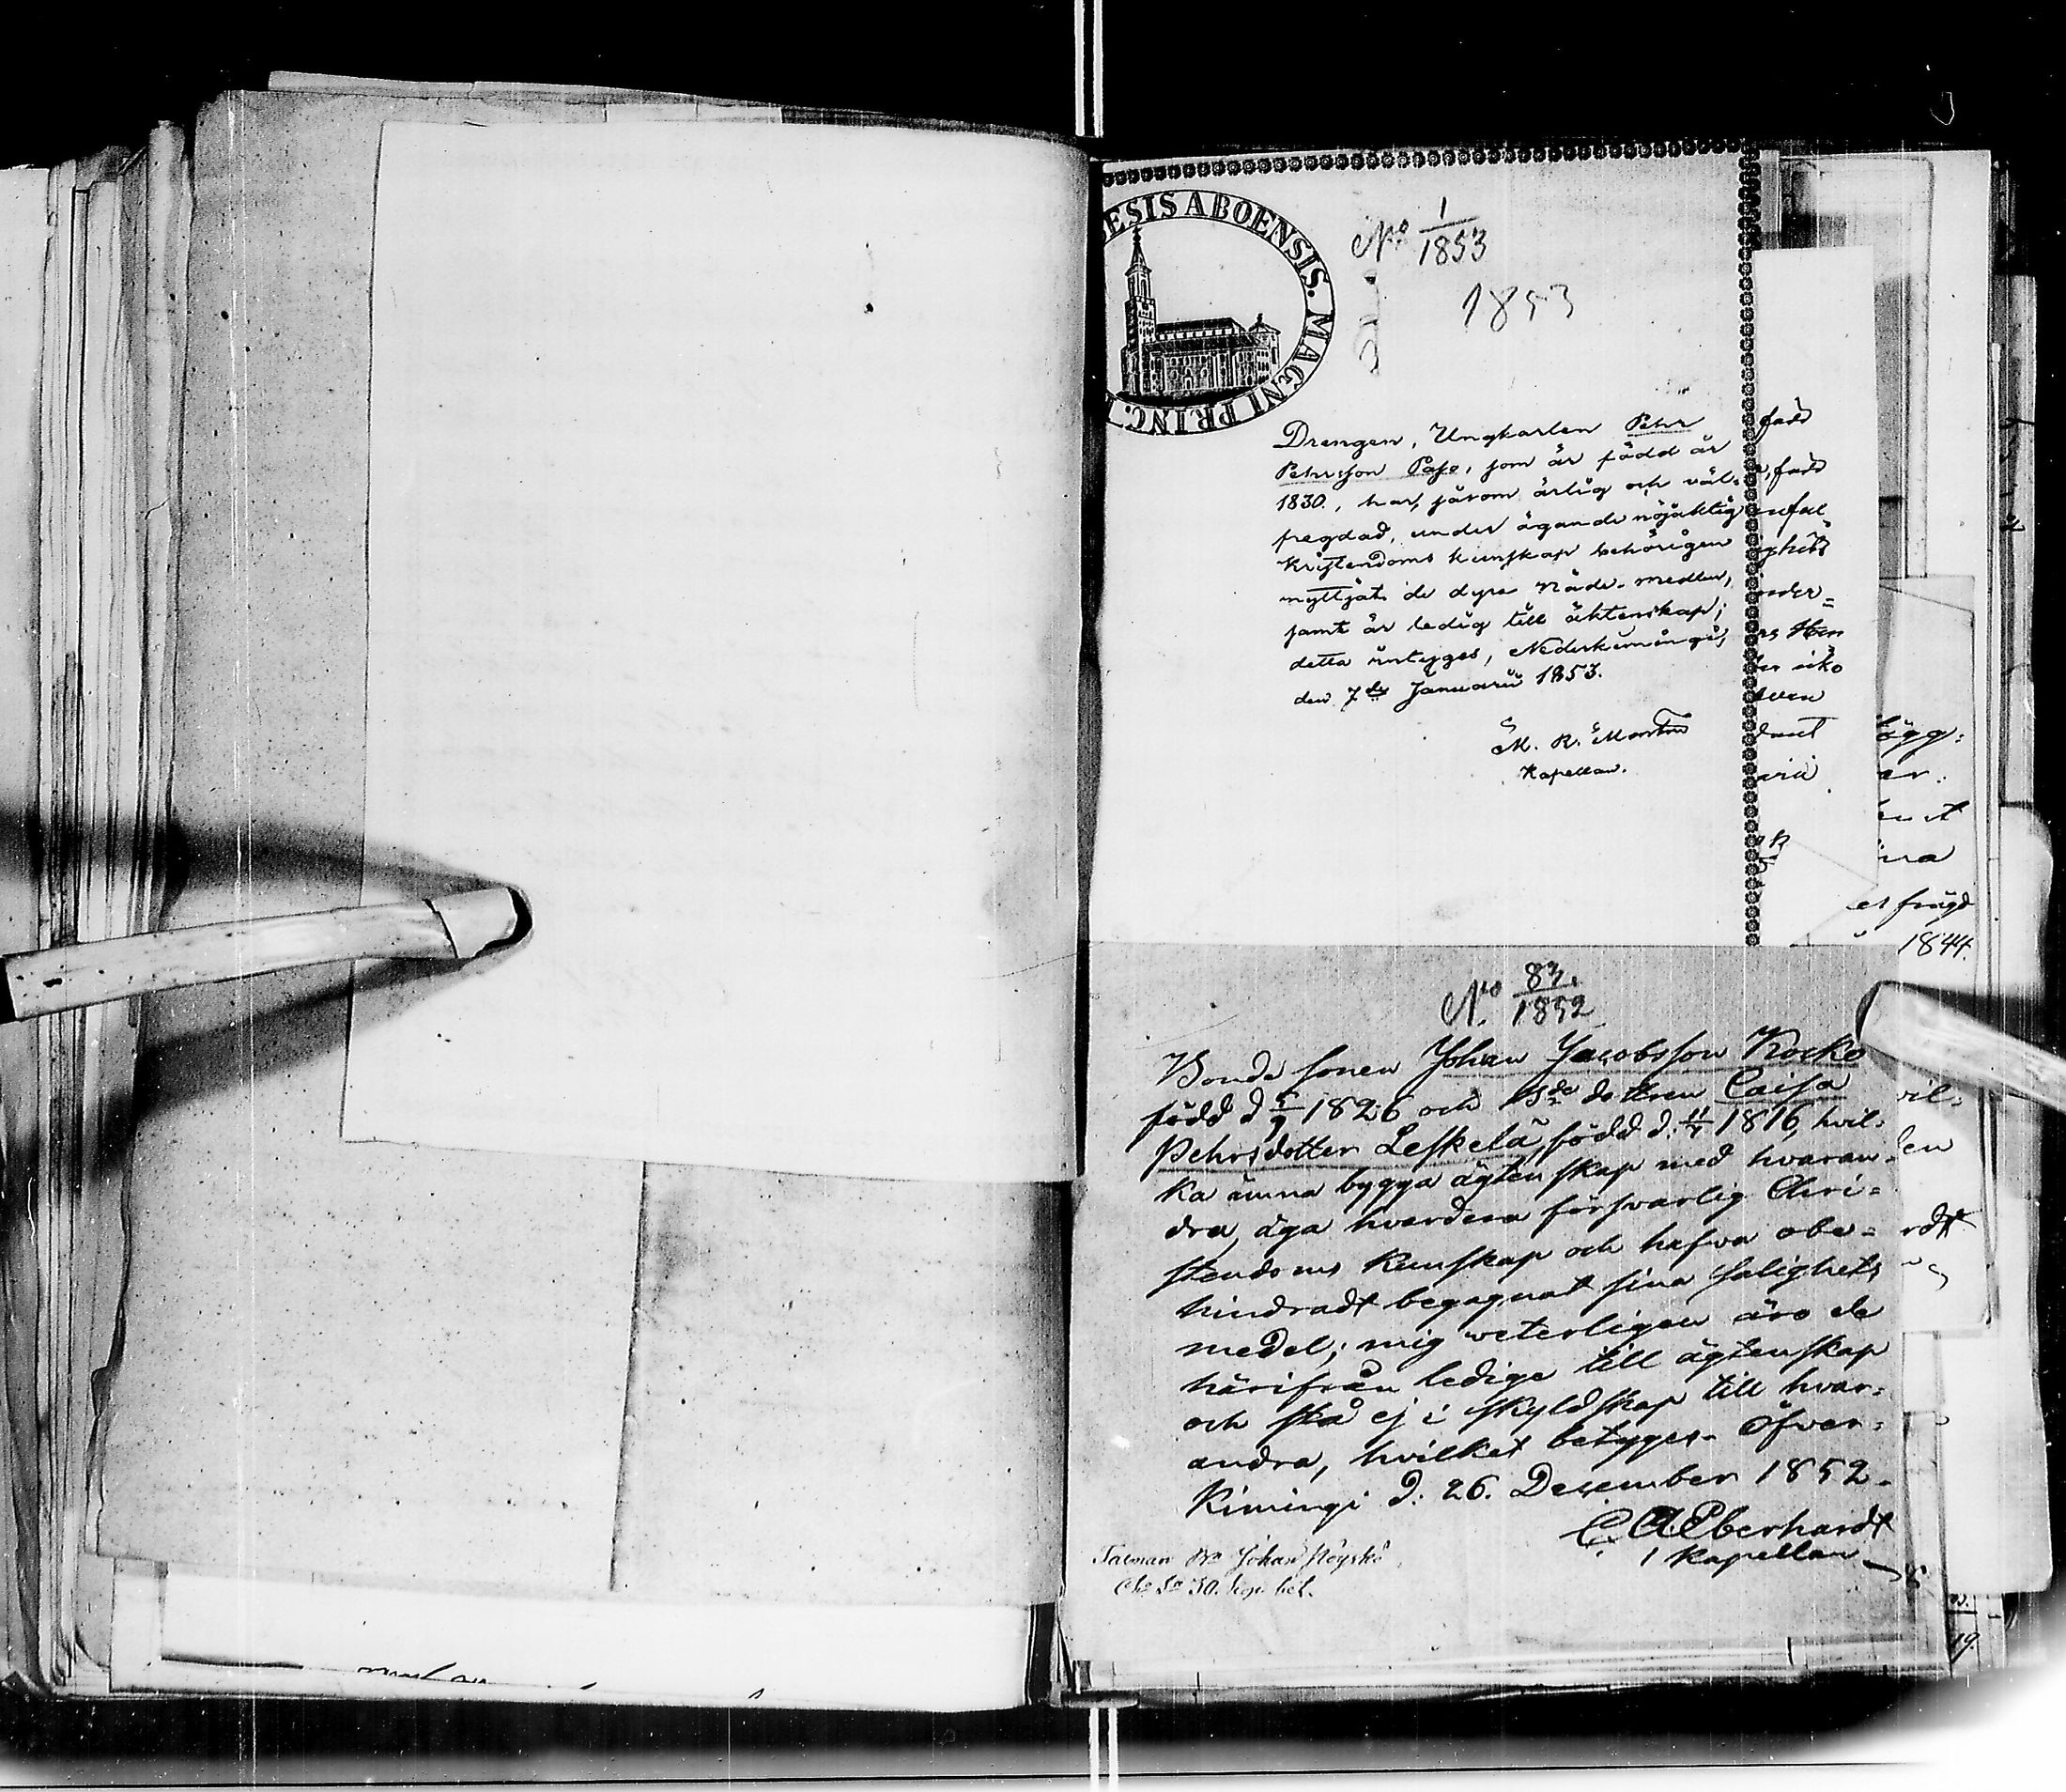 ESIS ABOENSIS. MAGNI PRINC.
No 1/1853
1853
Drengen, Ungkarlen Pehr
Pehrsson Paso, som är född år
1830., har, jämn ärlig och väl-
fregdad, under ägande nöjaktig
Kristendoms kunskap behörigen
nyttjat de dyra Nåde-medlen,
samt är ledig till äktenskap;
detta intygas, Nederkiminge,
den 7de Januarii 1853.
Kapellan.
född
född
1844.
No 83./1852
Bonde sonen Johan Jacobsson Kocko
född d 5/9 1826 och Bde dottren Caisa
Pehrsdotter Leskelä, född d. 11/4 1816, hvil-
ka ämna bygga ägtenskap med hvaran-
dra, äga hvardera försvarlig Chri-
stendoms Kunskap och hafva obe-
hindradt begagnat sina Salighets
medel; mig veterligen äro de
härifrån ledige till ägtenskap
och stå ej i skyldskap till hvar-
andra, hvilket betyges. Öfver-
Kimingi d. 26. December 1852.
C. A Eberhardt
Kapellan
Talman Bn Johan
19.